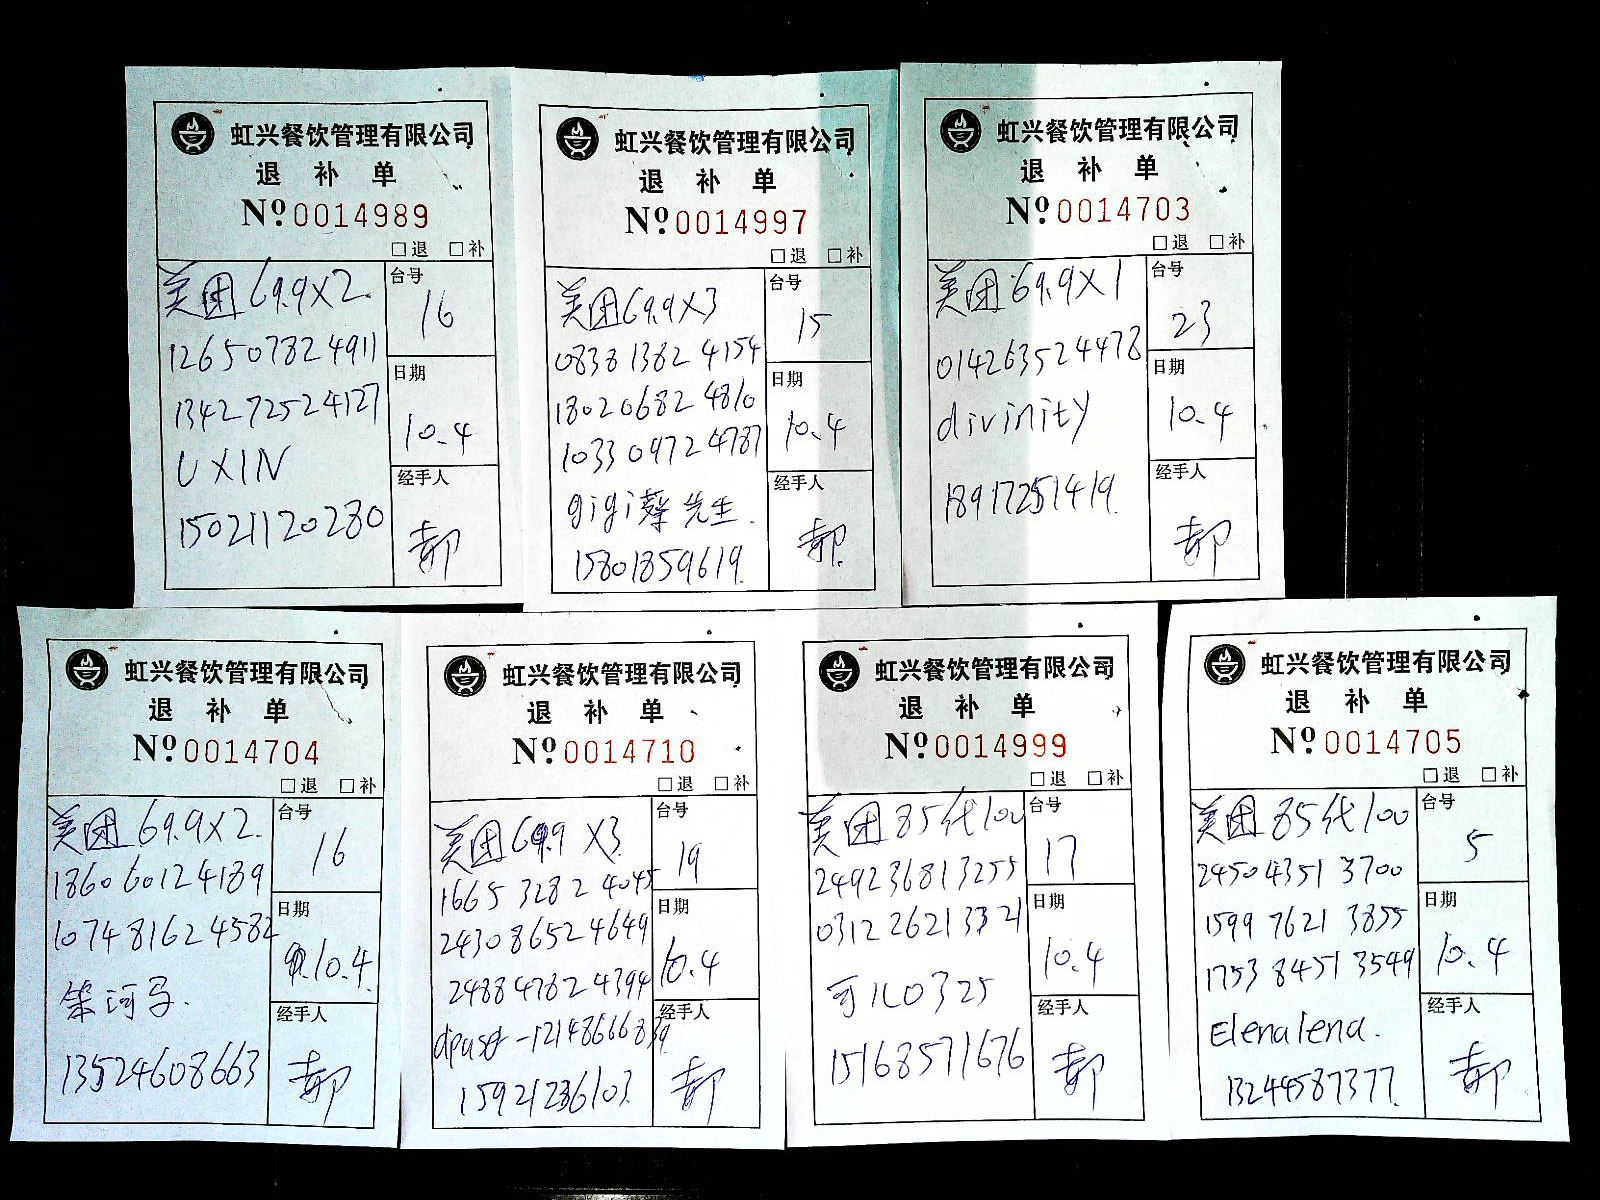 虹兴餐饮管理有限公司
退 补 单
Nº 0014989
□退 □补
美团69.9X2.
台号
16
126507824911
134272524127
日期
10.4
UXIN
15021120280
经手人
郝
虹兴餐饮管理有限公司
退 补 单
Nº 0014997
□退 □补
美团69.9X3
台号
15
0838 1382 4154
1802 0682 4810
1033 0972 4787
日期
10.4
gigi 先生.
15801859619.
经手人
郝
虹兴餐饮管理有限公司
退 补 单
Nº 0014703
□退 □补
美团69.9X1
台号
23
014263524478
divinity
日期
10.4
18917251419.
经手人
郝
虹兴餐饮管理有限公司
退 补 单
Nº 0014704
□退 □补
美团69.9X2.
台号
16
186060124189
107481624582
日期
10.4.
笨河马.
13524608663
经手人
郝
虹兴餐饮管理有限公司
退 补 单
Nº 0014710
□退 □补
美团69.9 X3.
台号
19
1665 3282 4045
243086524649
248847824394
日期
10.4
15921236103.
经手人
郝
虹兴餐饮管理有限公司
退 补 单
Nº 0014999
□退 □补
美团85代100
台号
17
249236813255
0312 2621 3321
日期
10.4
15168571676
经手人
郝
虹兴餐饮管理有限公司
退 补 单
Nº 0014705
□退 □补
美团85代100
台号
5
245043513700
1599 7621 3855
1753 8451 3549
日期
10.4
Elenalena.
13244587377.
经手人
郝